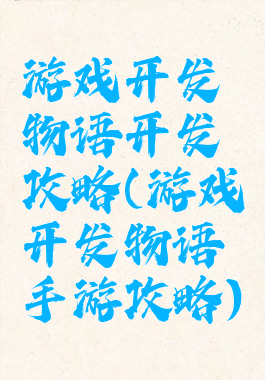 游戏开发
物语开发
攻略(游戏
开发物语
手游攻略)